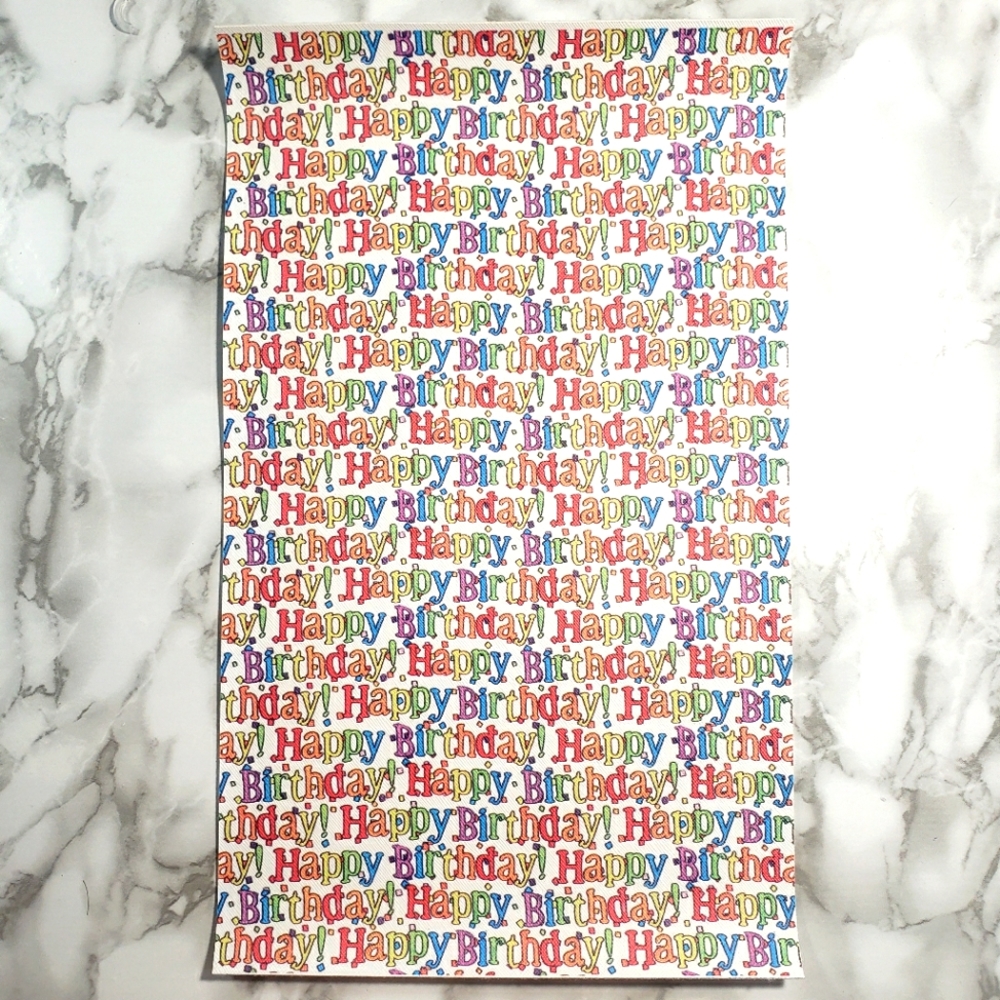 ay! Happy Birthday! Happy Birthda
y Birthday! Happy Birthday! Happy
thday! Happy Birthday! Happy Bir
ay! Happy Birthday! Happy Birthda
y Birthday! Happy Birthday! Happy
thday! Happy Birthday! Happy Bir
ay! Happy Birthday! Happy Birthda
y Birthday! Happy Birthday! Happy
thday! Happy Birthday! Happy Bir
ay! Happy Birthday! Happy Birthda
y Birthday! Happy Birthday! Happy
thday! Happy Birthday! Happy Bir
ay! Happy Birthday! Happy Birthda
y Birthday! Happy Birthday! Happy
thday! Happy Birthday! Happy Bir
ay! Happy Birthday! Happy Birthda
y Birthday! Happy Birthday! Happy
thday! Happy Birthday! Happy Bir
ay! Happy Birthday! Happy Birthda
y Birthday! Happy Birthday! Happy
thday! Happy Birthday! Happy Bir
ay! Happy Birthday! Happy Birthda
y Birthday! Happy Birthday! Happy
thday! Happy Birthday! Happy Bir